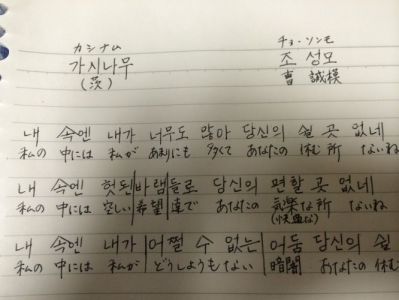 カシナム チョ・ソンモ
가시나무 조 성모
(茨) 曺 誠模
내 속엔 내가 너무도 많아 당신의 쉴 곳 없네
私の 中には 私が あまりにも 多くて あなたの 休む 所 ないね
내 속엔 헛된 바램들로 당신의 편할 곳 없네
私の 中には 空しい 希望達で あなたの 気楽な 所 ないね
(快適な)
내 속엔 내가 어쩔 수 없는 어둠 당신의 쉴
私の 中には 私が どうしようもない 暗闇 あなたの 休む